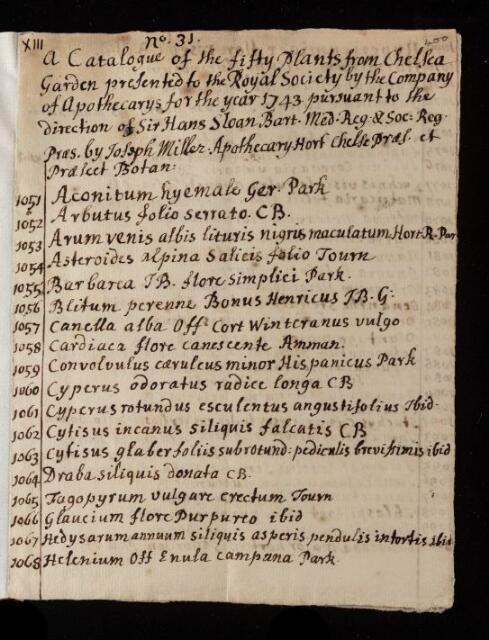 XIII
No. 31.
400
A Catalogue of the fifty Plants from Chelsea
Garden presented to the Royal Society by the Company
of Apothecarys for the year 1743 pursuant to the
direction of Sir Hans Sloan Bart. Med. Reg. & Soc. Reg.
Præs. by Joseph Miller Apothecary Hort Chelse Præf. et
Prælect Botan:
1051 Aconitum hyemale Ger. Park
1052 Arbutus folio serrato. CB.
1053 Arum venis albis lituris nigris maculatum Hort R. Par
1054 Asteroides alpina Salicis folio Tourn
1055 Barbarea JB. flore simplici Park.
1056 Blitum perenne Bonus Henricus JB. G:
1057 Canella alba Off. Cort Winteranus vulgo
1058 Cardiaca flore canescente Amman.
1059 Convolvulus cæruleus minor Hispanicus Park
1060 Cyperus odoratus radice longa CB
1061 Cyperus rotundus esculentus angustifolius Ibid.
1062 Cytisus incanus siliquis falcatis CB
1063 Cytisus glaber foliis subrotund: pediculis brevissimis ibid
1064 Draba siliquis donata CB.
1065 Fagopyrum vulgare erectum Tourn
1066 Glaucium flore Purpureo ibid
1067 Hedysarum annuum siliquis asperis pendulis intortis ibid
1068 Helenium Off Enula campana Park.